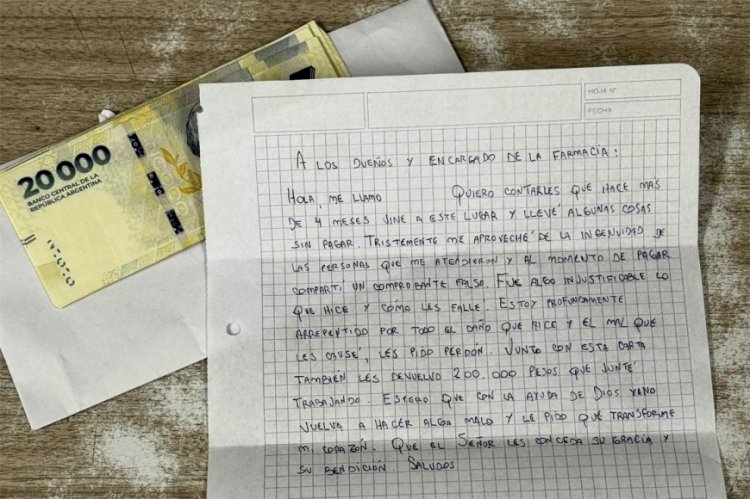 20000
BANCO CENTRAL DE LA
REPÚBLICA ARGENTINA
HOJA N°
FECHA
A LOS DUEÑOS Y ENCARGADO DE LA FARMACIA:
HOLA, ME LLAMO QUIERO CONTARLES QUE HACE MAS
DE 4 MESES VINE A ESTE LUGAR Y LLEVÉ ALGUNAS COSAS
SIN PAGAR. TRISTEMENTE ME APROVECHÉ DE LA INGENUIDAD DE
LAS PERSONAS QUE ME ATENDIERON Y AL MOMENTO DE PAGAR
COMPARTÍ UN COMPROBANTE FALSO. FUE ALGO INJUSTIFICABLE LO
QUE HICE Y COMO LES FALLE. ESTOY PROFUNDAMENTE
ARREPENTIDO POR TODO EL DAÑO QUE HICE Y EL MAL QUE
LES CAUSÉ, LES PIDO PERDÓN. JUNTO CON ESTA CARTA
TAMBIÉN LES DEVUELVO 200.000 PESOS QUE JUNTÉ
TRABAJANDO. ESPERO QUE CON LA AYUDA DE DIOS YA NO
VUELVA A HACER ALGO MALO Y LE PIDO QUE TRANSFORME
MI CORAZÓN. QUE EL SEÑOR LES CONCEDA SU GRACIA Y
SU BENDICIÓN SALUDOS